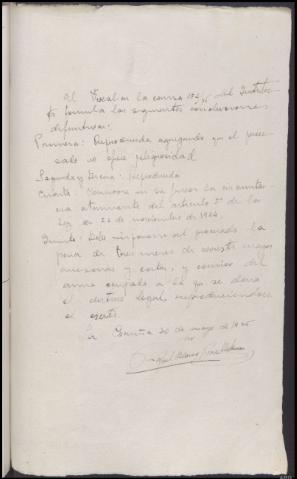 El Fiscal en la causa 102/ del Distrito
formula las siguientes conclusiones
definitivas.
Primera: Reproducida agregando que el procesado
no ofrece peligrosidad
Segunda y tercera: Reproducida
Cuarta: Concurre en su favor la circunstancia
atenuante del artículo 3º de la
Ley de 22 de noviembre de 1934.
Quinta: Debe imponerse al procesado la
pena de tres meses de arresto mayor
accesorias y costas, y comiso del
arma ocupada a la que se dará
el destino legal, reproduciéndose
el resto.
La Coruña 20 de mayo de 1935